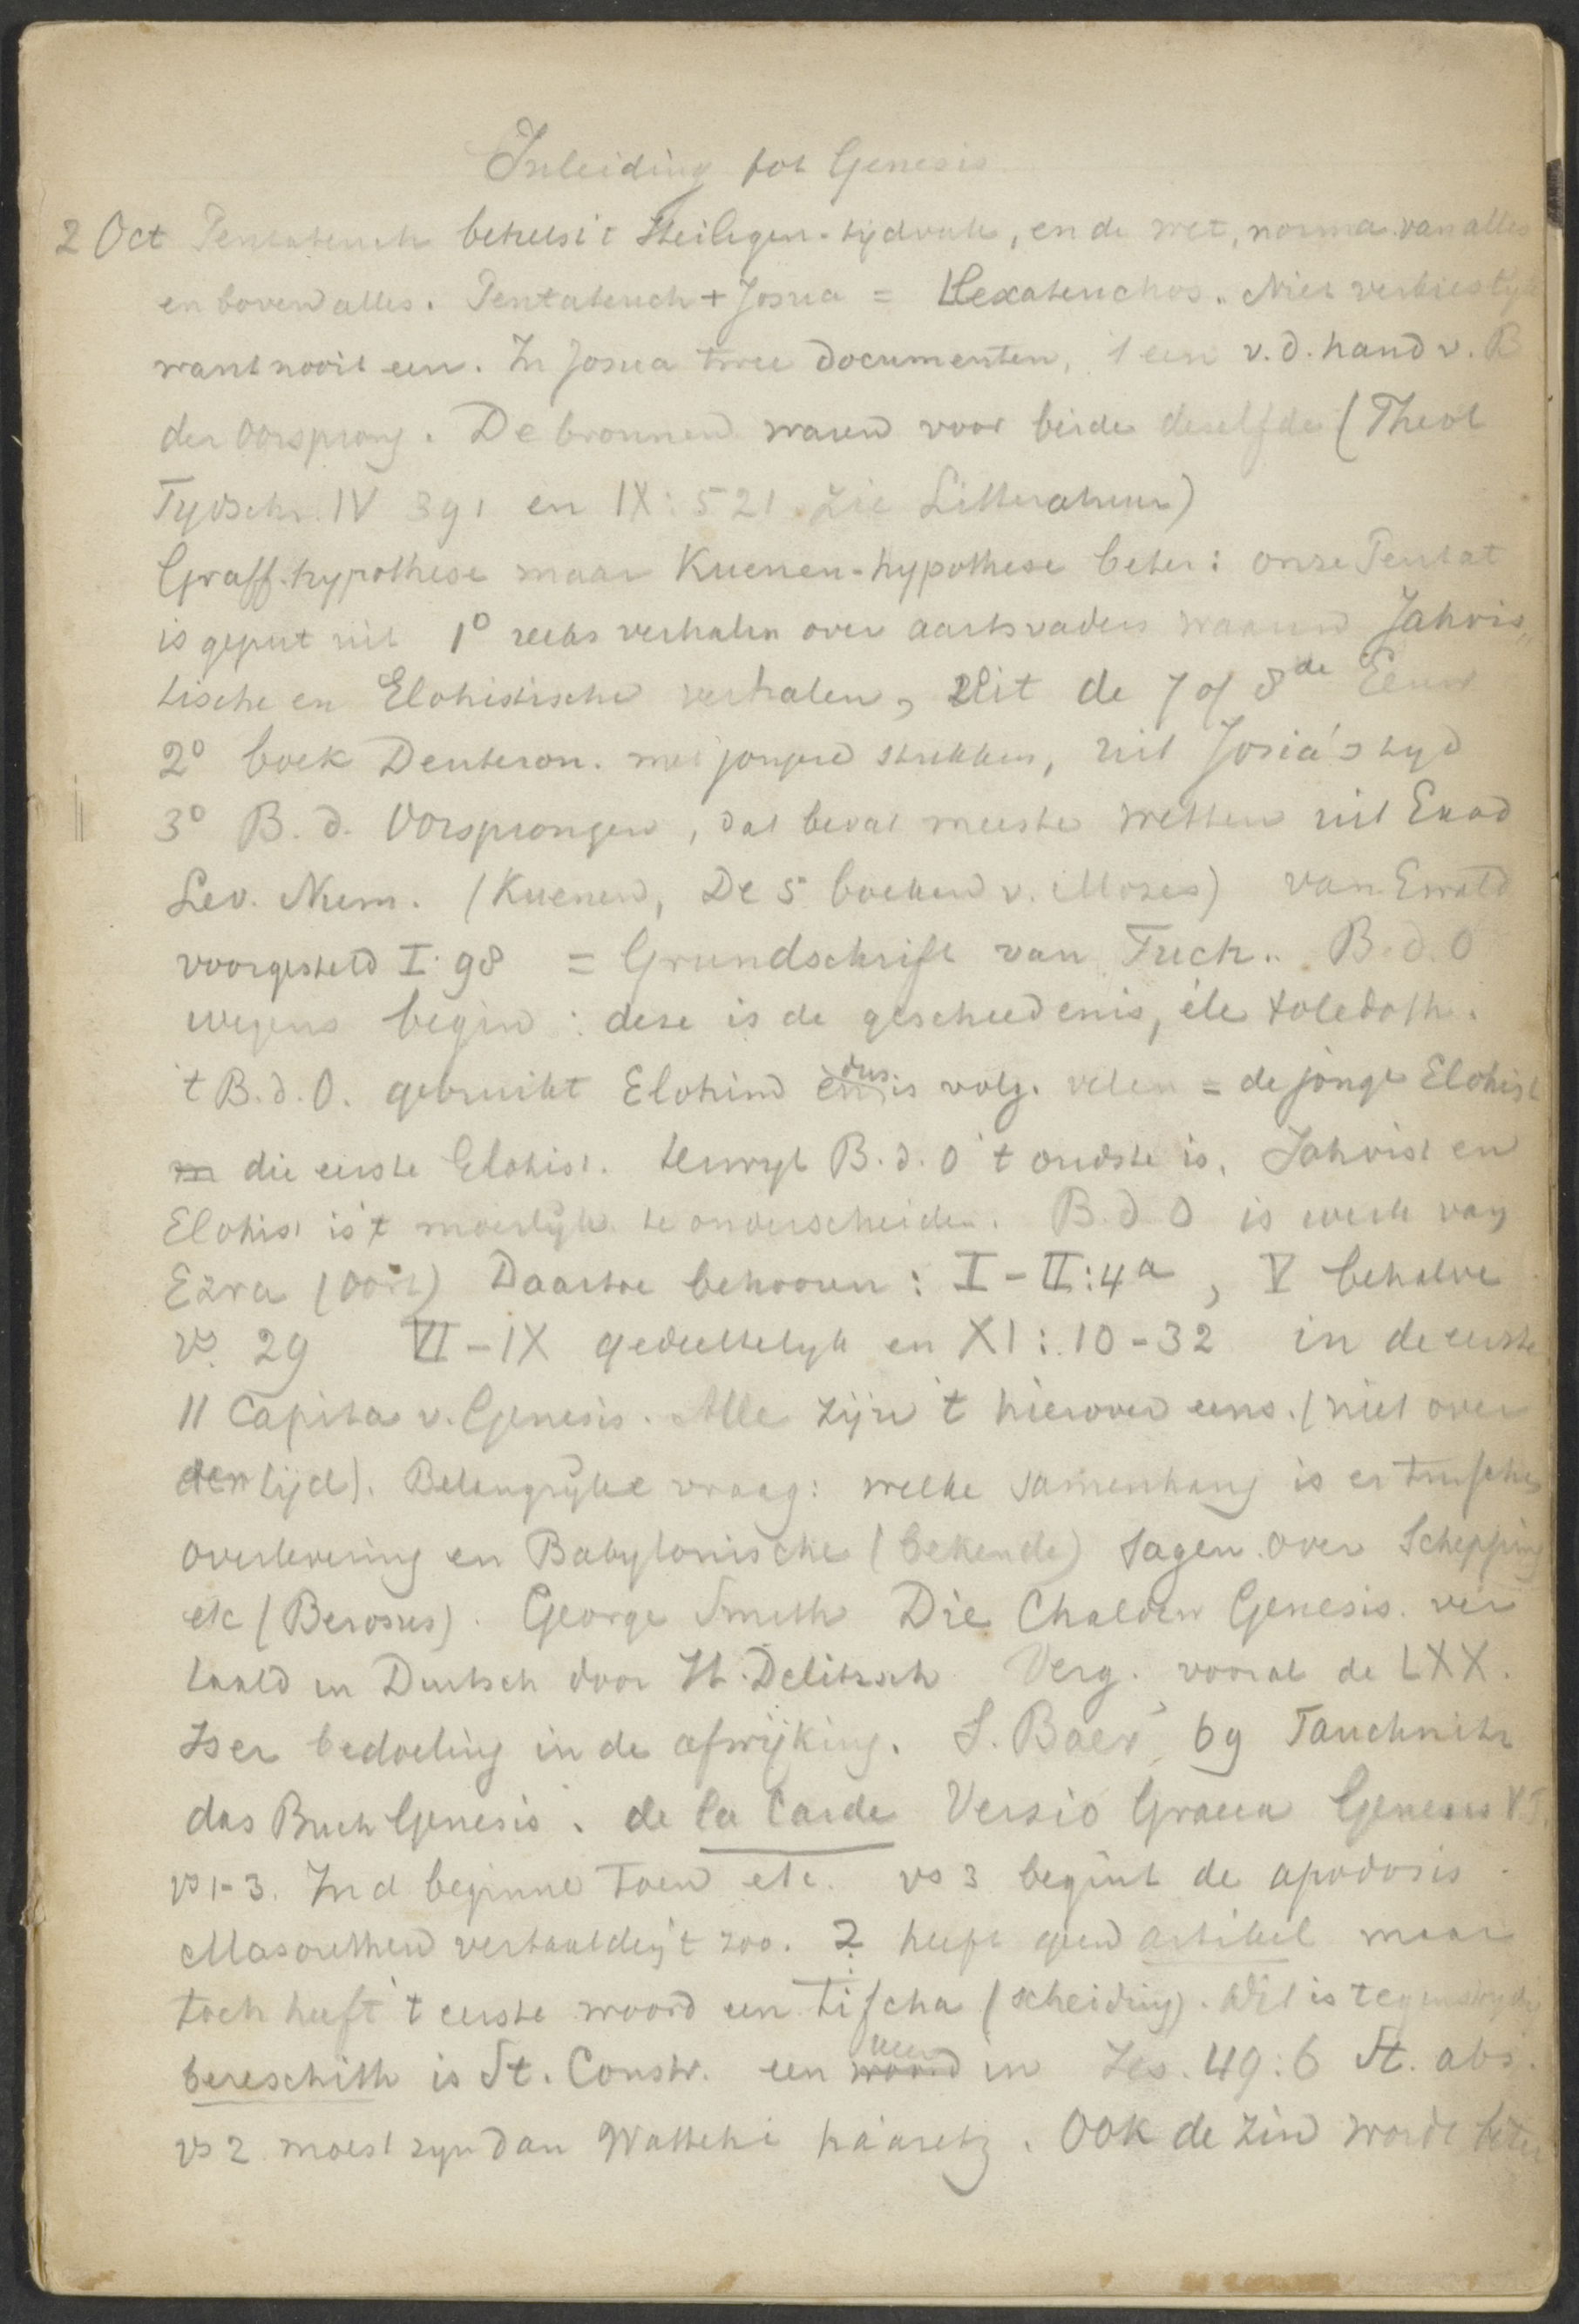 Inleiding tot Genesis
2 Oct Pentateuch behelst 't Heiligen-tijdvak, en de wet, norma van alles
en boven alles. Pentateuch + Josua = Hexateuchos. Niet verkieslyk
want nooit een. In Josua twee documenten, 1 een v. d. hand v. B
der Oorsprong. De bronnen waren voor beide deselfde (Theol
Tydschr. IV 391 en IX: 521. Zie Litteratuur)
Graff-hypothese maar Kuenen-hypothese beter: onze Pentat
is geput uit 1° reeks verhalen over aartsvaders waarin Jahvis„
tische en Elohistische verhalen, Uit de 7 of 8de Eeuw
2° boek Deuteron. met jongere stukken, uit Josia's tyd
3° B. d. Oorsprongen, dat bevat meeste wetten uit Exod
Lev. Num. (Kuenen, De 5 boeken v. Mozes) van Ewald
voorgesteld I: 98 = Grundschrift van Tuch. B. d. O
wegens begin: dese is de geschiedenis, éle toledoth.
't B. d. O. gebruikt Elohim en dus is volg. velen = de jonge Elohist
m die eerste Elohist. terwyl B. d. O 't oudste is. Jahvist en
Elohist is 't moeilyk te onderscheiden. B. d. O is werk van
Ezra (Oort) Daartoe behooren: I - II:4a, V behalve
vs. 29 VI - IX gedeeltelyk en XI: 10-32 in de eerste
11 Capita v. Genesis. Alle zijn 't hierover eens. (niet over
den tijd). Belangryke vraag: welke samenhang is er tusschen
overlevering en Babylonische (bekende) sagen over Schepping
etc (Berosus). George Smith Die Chaldäer Genesis. ver
taald in Duitsch door H. Delitzsch Verg. vooral de LXX.
Is er bedoeling in de afwijking. S. Baer 69 Tauchnitz
das Buch Genesis. de la Garde Versio Graeca Genesis V.T.
vs 1-3. In d beginne toen etc. vs 3 begint de apodosis.
Masorethen vertaalden 't zoo. בְּ heeft geen artikel maar
toch heeft 't eerste woord een tifcha (scheiding). Dit is tegenstrydig
bereschith is St. Constr. een woord neen in Jes. 49:6 St. abs.
vs 2 moest zyn dan Wattehi háaretz. Ook de zin wordt beter